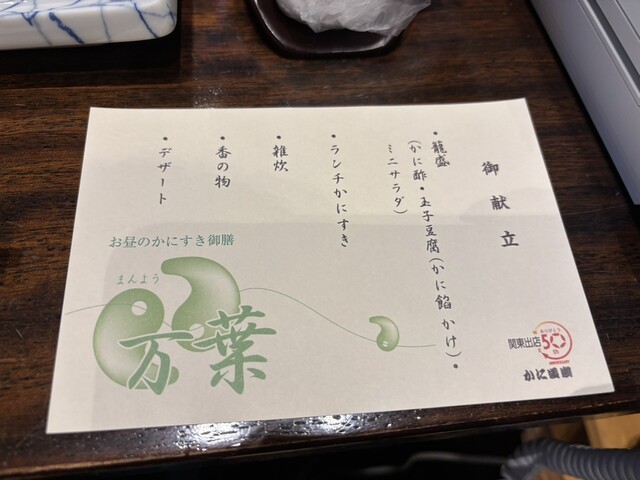 御献立
・籠盛
(かに酢・玉子豆腐(かに餡かけ)・
ミニサラダ)
・ランチかにすき
・雑炊
・香の物
・デザート
お昼のかにすき御膳
まんよう
万葉
関東出店
ありがとう
50th
ANNIVERSARY
かに道楽